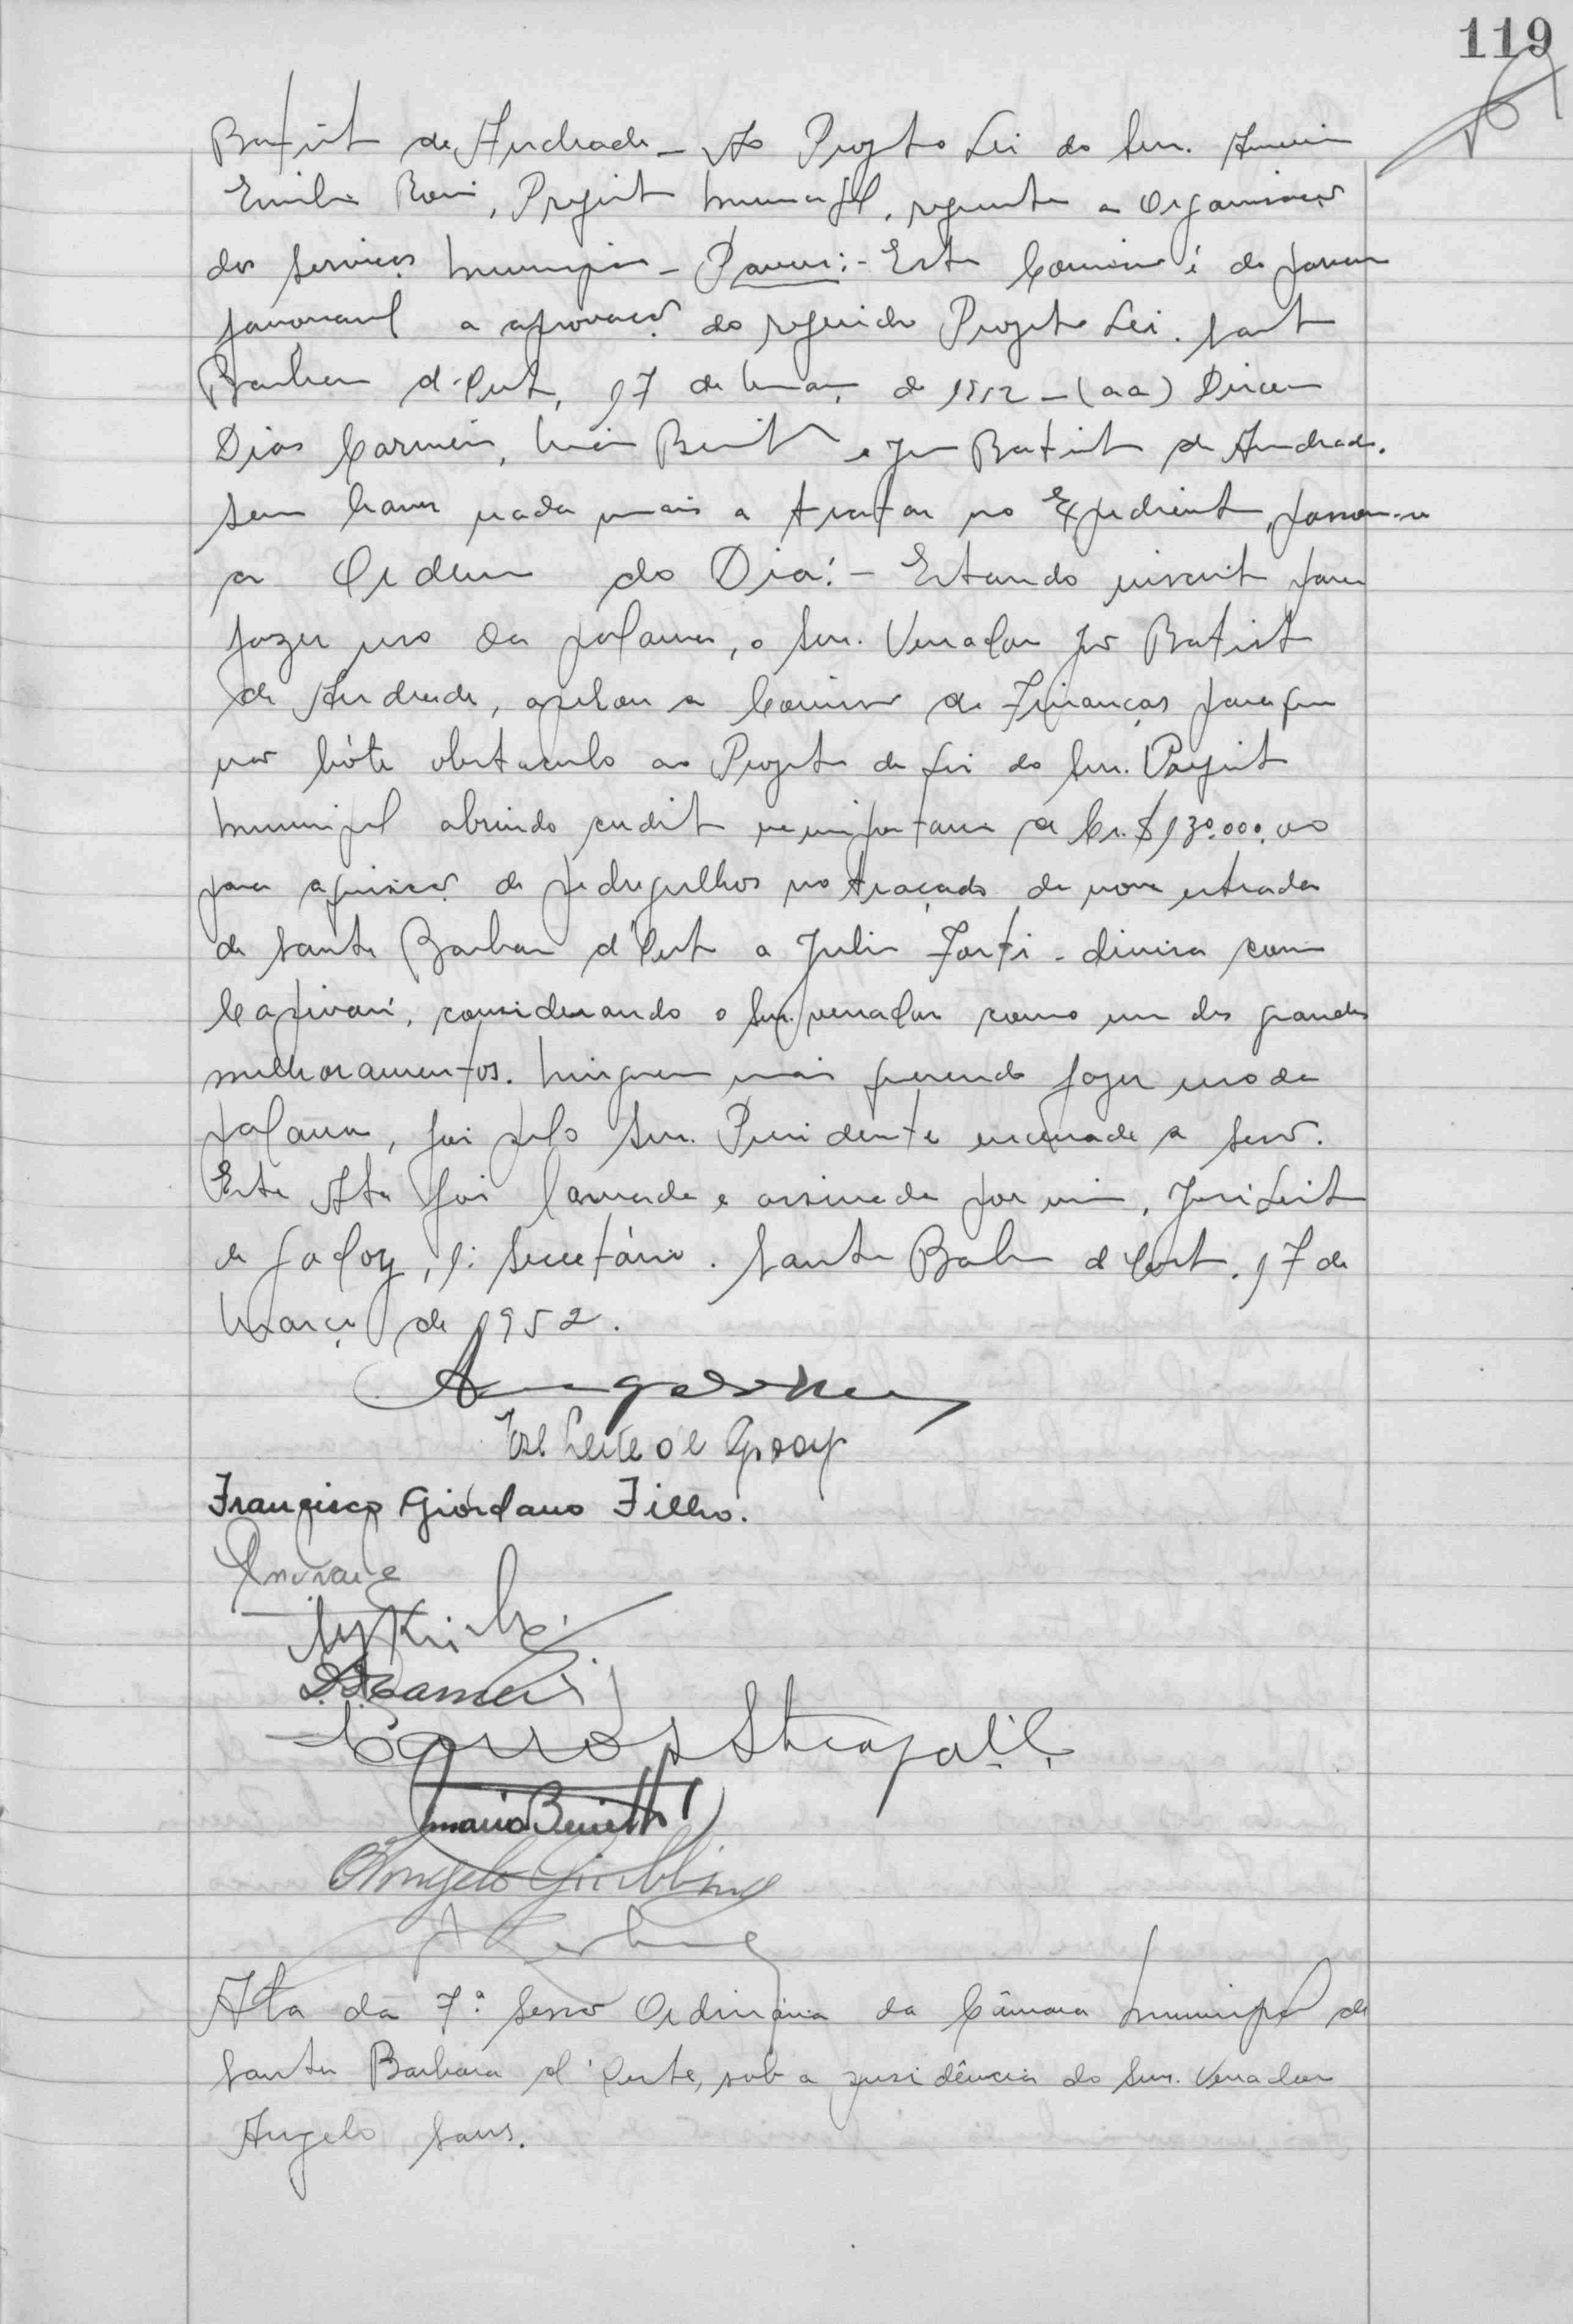 119
Batista de Andrade - Ao Projeto Lei do Snr. Americo
Emilio Romi, Prefeito Municipal, referente a Organização
dos serviços Municipais - Parecer:- Esta Comissão é de parecer
favoravel a aprovação do referido Projeto Lei. Santa
Barbara d'Oeste, 17 de Março de 1952 - (aa) Dirceu
Dias Carneiro, Mario Benetti e José Batista de Andrade.
Sem haver nada mais a tratar no Expediente, passou-se
a Ordem do Dia:- Estando inscrito para
fazer uso da palavra, o Snr. Vereador José Batista
de Andrade, apelou a Comissão de Finanças para que
não bóte obstaculo ao Projeto de Lei do Snr. Prefeito
Municipal abrindo credito na importancia de Cr.$130.000,00
para aquisição de pedregulhos no traçado da nova estrada
de Santa Barbara d'Oeste a divisa com
Capivarí, considerando o Snr. vereador como um dos grandes
melhoramentos. Ninguem mais querendo fazer uso da
palavra, foi pelo Snr. Presidente encerrada a sessão.
Esta Ata foi lavrada e assinada por mim, José Leite
de Godoy, 1º Secretário. Santa Barbara d'Oeste, 17 de
Março de 1952.
José Leite de Godoy
Francisco Giordano Filho.
Andrade
Carlos Steagall
Mario Benetti
Angelo Giubbina
Ata da 7ª Sessão Ordinária da Câmara Municipal de
Santa Barbara d'Oeste, sob a presidência do Snr. Vereador
Angelo Sans.